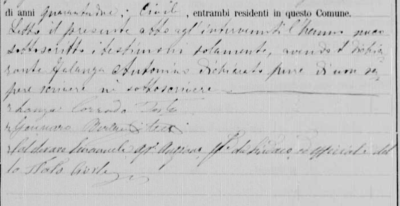 di anni quarantadue; Civili, entrambi residenti in questo Comune.
Letto il presente atto agli intervenuti l'hanno meco
sottoscritto i testimoni solamente, avendo il dichia
rante Antonino dichiarato pure di non sa
pere scrivere nè sottoscrivere
Corrado Teste
Teste
Emanuele ff. di Sindaco, ed officiale del
lo Stato Civile